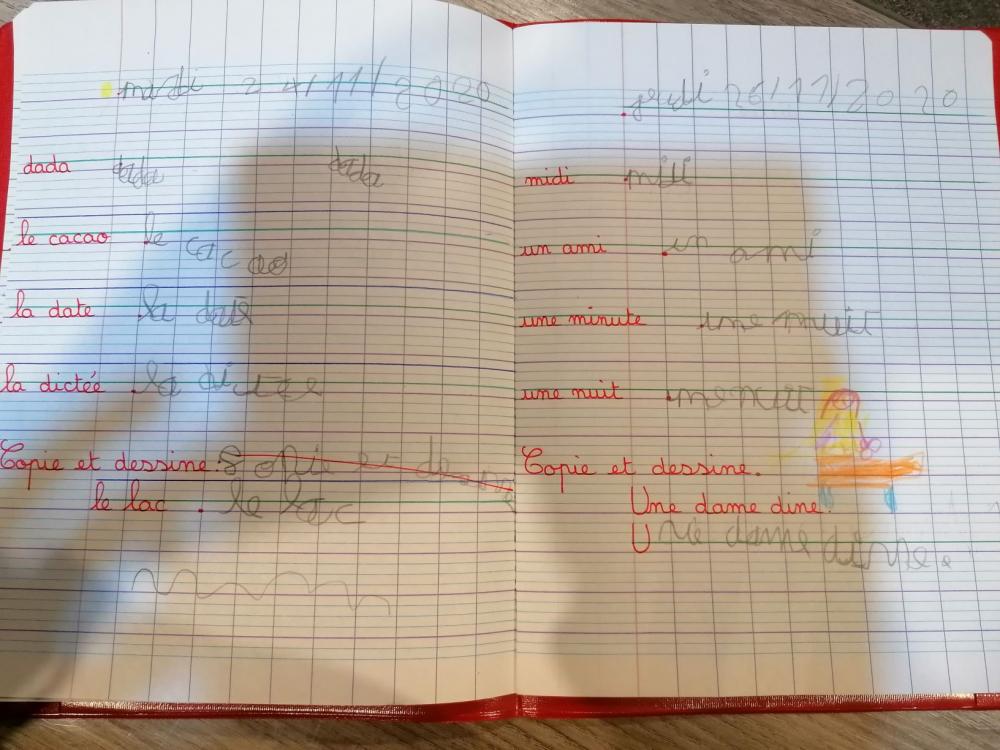 mardi 24/11/2020
dada dada dada
le cacao le cacao
la date la date
la dictée la dictée
Copie et dessine. Copie et dessine
le lac. le lac
jeudi 26/11/2020
midi midi
un ami un ami
une minute une nuit
une nuit une nuit
Copie et dessine.
Une dame dine.
Une dame dine.